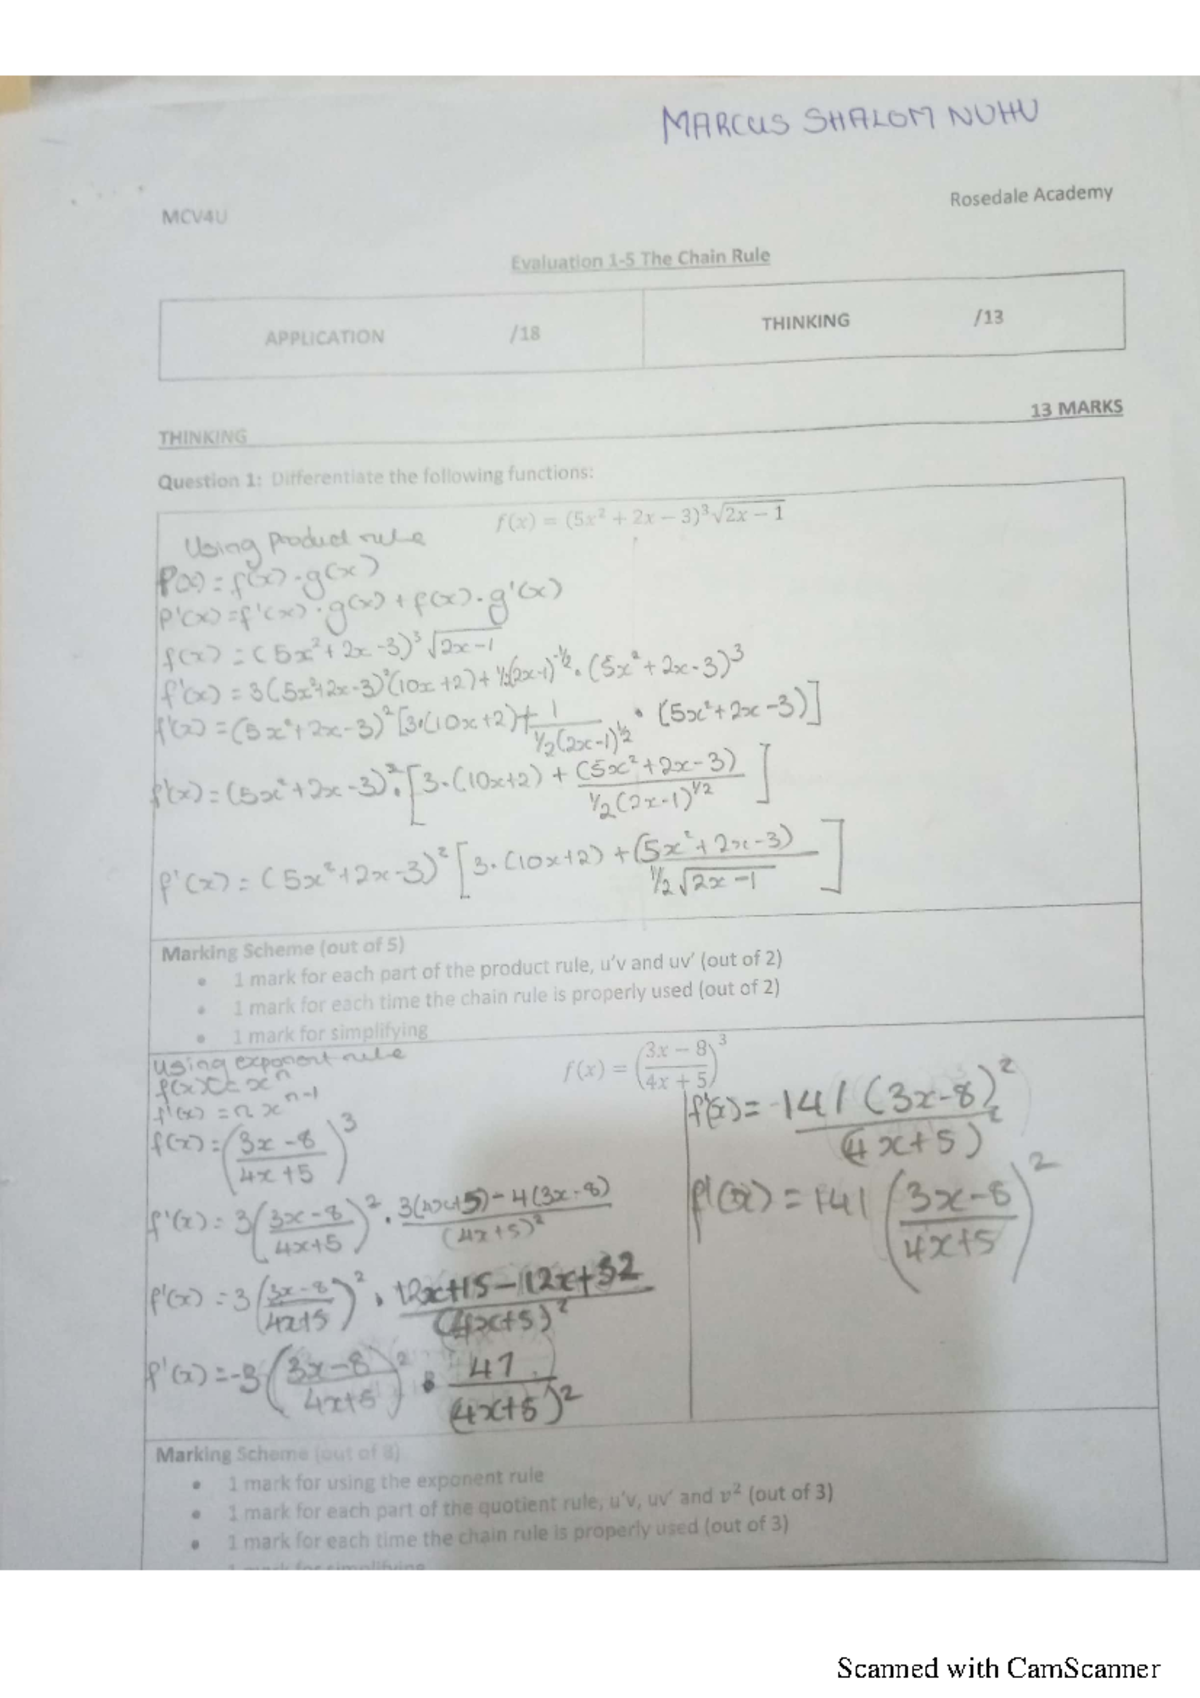 MARCUS SHALOM NUHU
MCV4U
Rosedale Academy
Evaluation 1-5 The Chain Rule
APPLICATION /18
THINKING /13
THINKING
13 MARKS
Question 1: Differentiate the following functions:
f(x) = (5x² + 2x − 3)³√(2x − 1)
Using product rule
P(x) = f(x) · g(x)
P'(x) = f'(x) · g(x) + f(x) · g'(x)
f(x) = (5x² + 2x - 3)³ √(2x - 1)
f'(x) = 3(5x² + 2x - 3)²(10x + 2) + ½(2x - 1)^-½ · (5x² + 2x - 3)³
f'(x) = (5x² + 2x - 3)² [3·(10x + 2) + 1/(½(2x - 1)^½) · (5x² + 2x - 3)]
f'(x) = (5x² + 2x - 3)² · [3·(10x + 2) + (5x² + 2x - 3)/(½(2x - 1)^1/2)]
f'(x) = (5x² + 2x - 3)² [3·(10x + 2) + (5x² + 2x - 3)/(½√(2x - 1))]
Marking Scheme (out of 5)
• 1 mark for each part of the product rule, u'v and uv' (out of 2)
• 1 mark for each time the chain rule is properly used (out of 2)
• 1 mark for simplifying
f(x) = ((3x − 8)/(4x + 5))³
Using exponent rule
f(x) = xⁿ
f'(x) = n xⁿ⁻¹
f(x) = ((3x - 8)/(4x + 5))³
f'(x) = 3((3x - 8)/(4x + 5))² · (3(4x + 5) - 4(3x - 8))/(4x + 5)²
f'(x) = 3((3x - 8)/(4x + 5))² · (12x + 15 - 12x + 32)/(4x + 5)²
f'(x) = -3((3x - 8)/(4x + 5))² · 47/(4x + 5)²
f'(x) = -141(3x - 8)²/(4x + 5)²
f'(x) = 141((3x - 8)/(4x + 5))²
Marking Scheme (out of 8)
• 1 mark for using the exponent rule
• 1 mark for each part of the quotient rule, u'v, uv' and v² (out of 3)
• 1 mark for each time the chain rule is properly used (out of 3)
1 mark for simplifying
Scanned with CamScanner